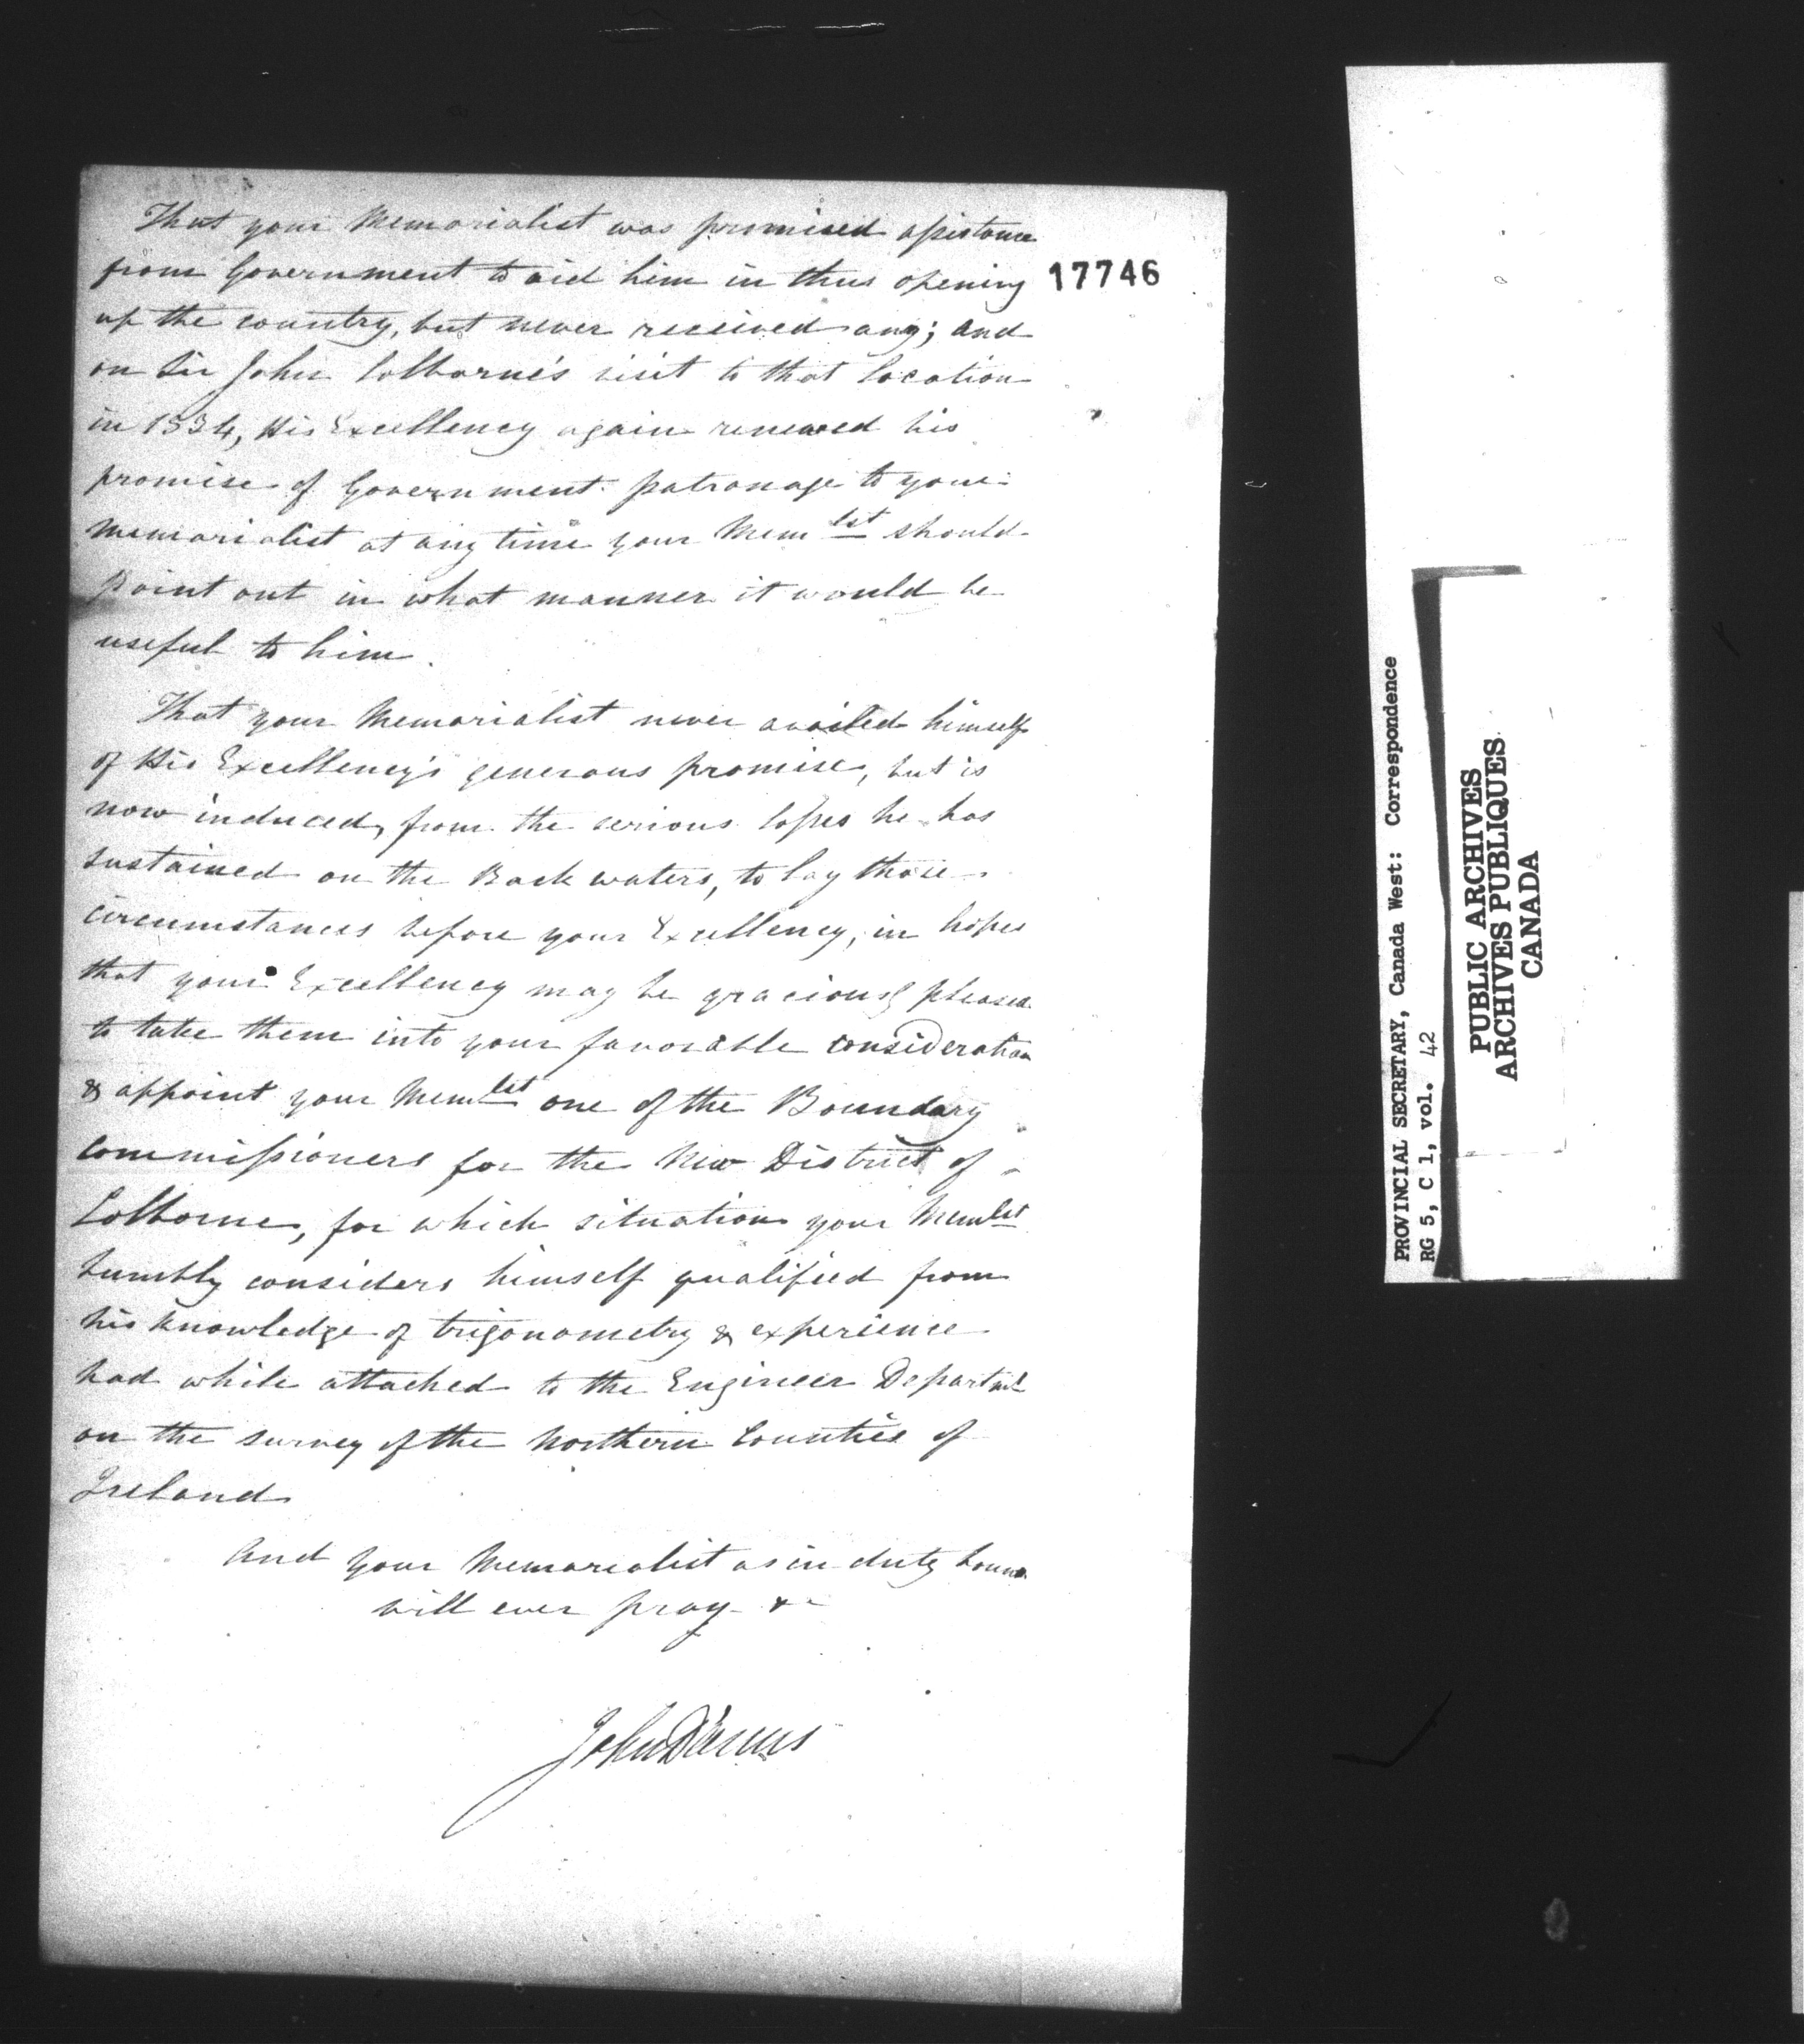 That your Memorialist was promised assistance
from Government to aid him in thus opening
17746
up the country, but never received any; and
on Sir John Colborne's visit to that location
in 1834, His Excellency again renewed his
promise of Government patronage to your
memorialist at any time your Mem lst should
point out in what manner it would be
useful to him.
That your Memorialist never availed himself
of His Excellency's generous promise, but is
now induced, from the serious losses he has
sustained on the Back waters, to lay those
circumstances before your Excellency, in hopes
that your Excellency may be graciously pleased
to take them into your favorable consideration
& appoint your Memlst one of the Boundary
Commissioners for the New District of
Colborne, for which situation your Memlst
humbly considers himself qualified from
his knowledge of trigonometry & experience
had while attached to the Engineer Departmt
on the survey of the Northern Counties of
Ireland
And your Memorialist as in duty bound
will ever pray &c
John
PROVINCIAL SECRETARY, Canada West: Correspondence
RG 5, C 1, vol. 42
PUBLIC ARCHIVES
ARCHIVES PUBLIQUES
CANADA